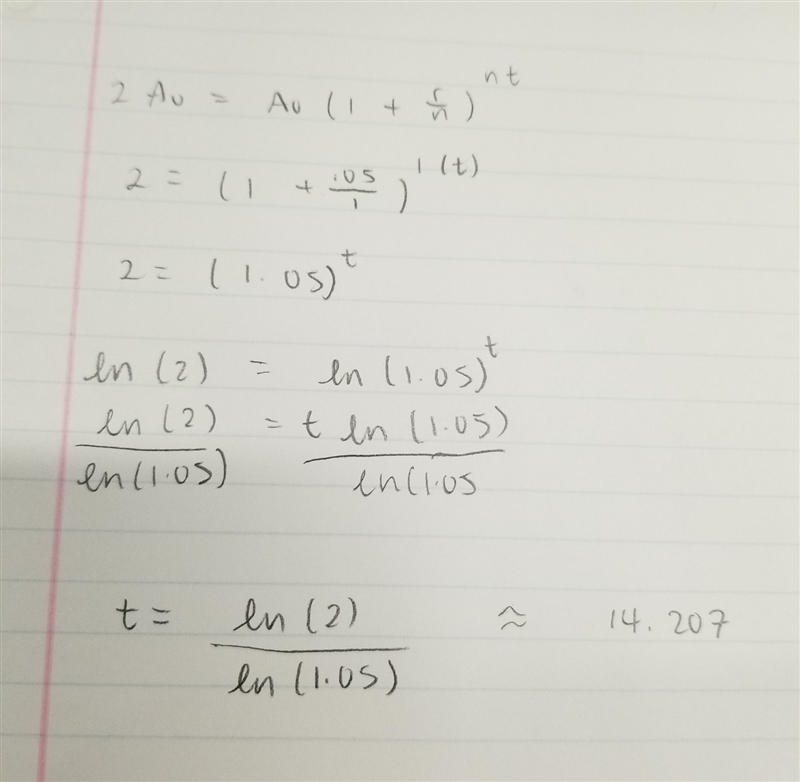 2 A₀ = A₀ (1 + r/n)^nt
2 = (1 + .05/1)^1(t)
2 = (1.05)^t
ln (2) = ln (1.05)^t
ln (2) / ln(1.05) = t ln (1.05) / ln(1.05
t = ln (2) / ln (1.05) ≈ 14.207